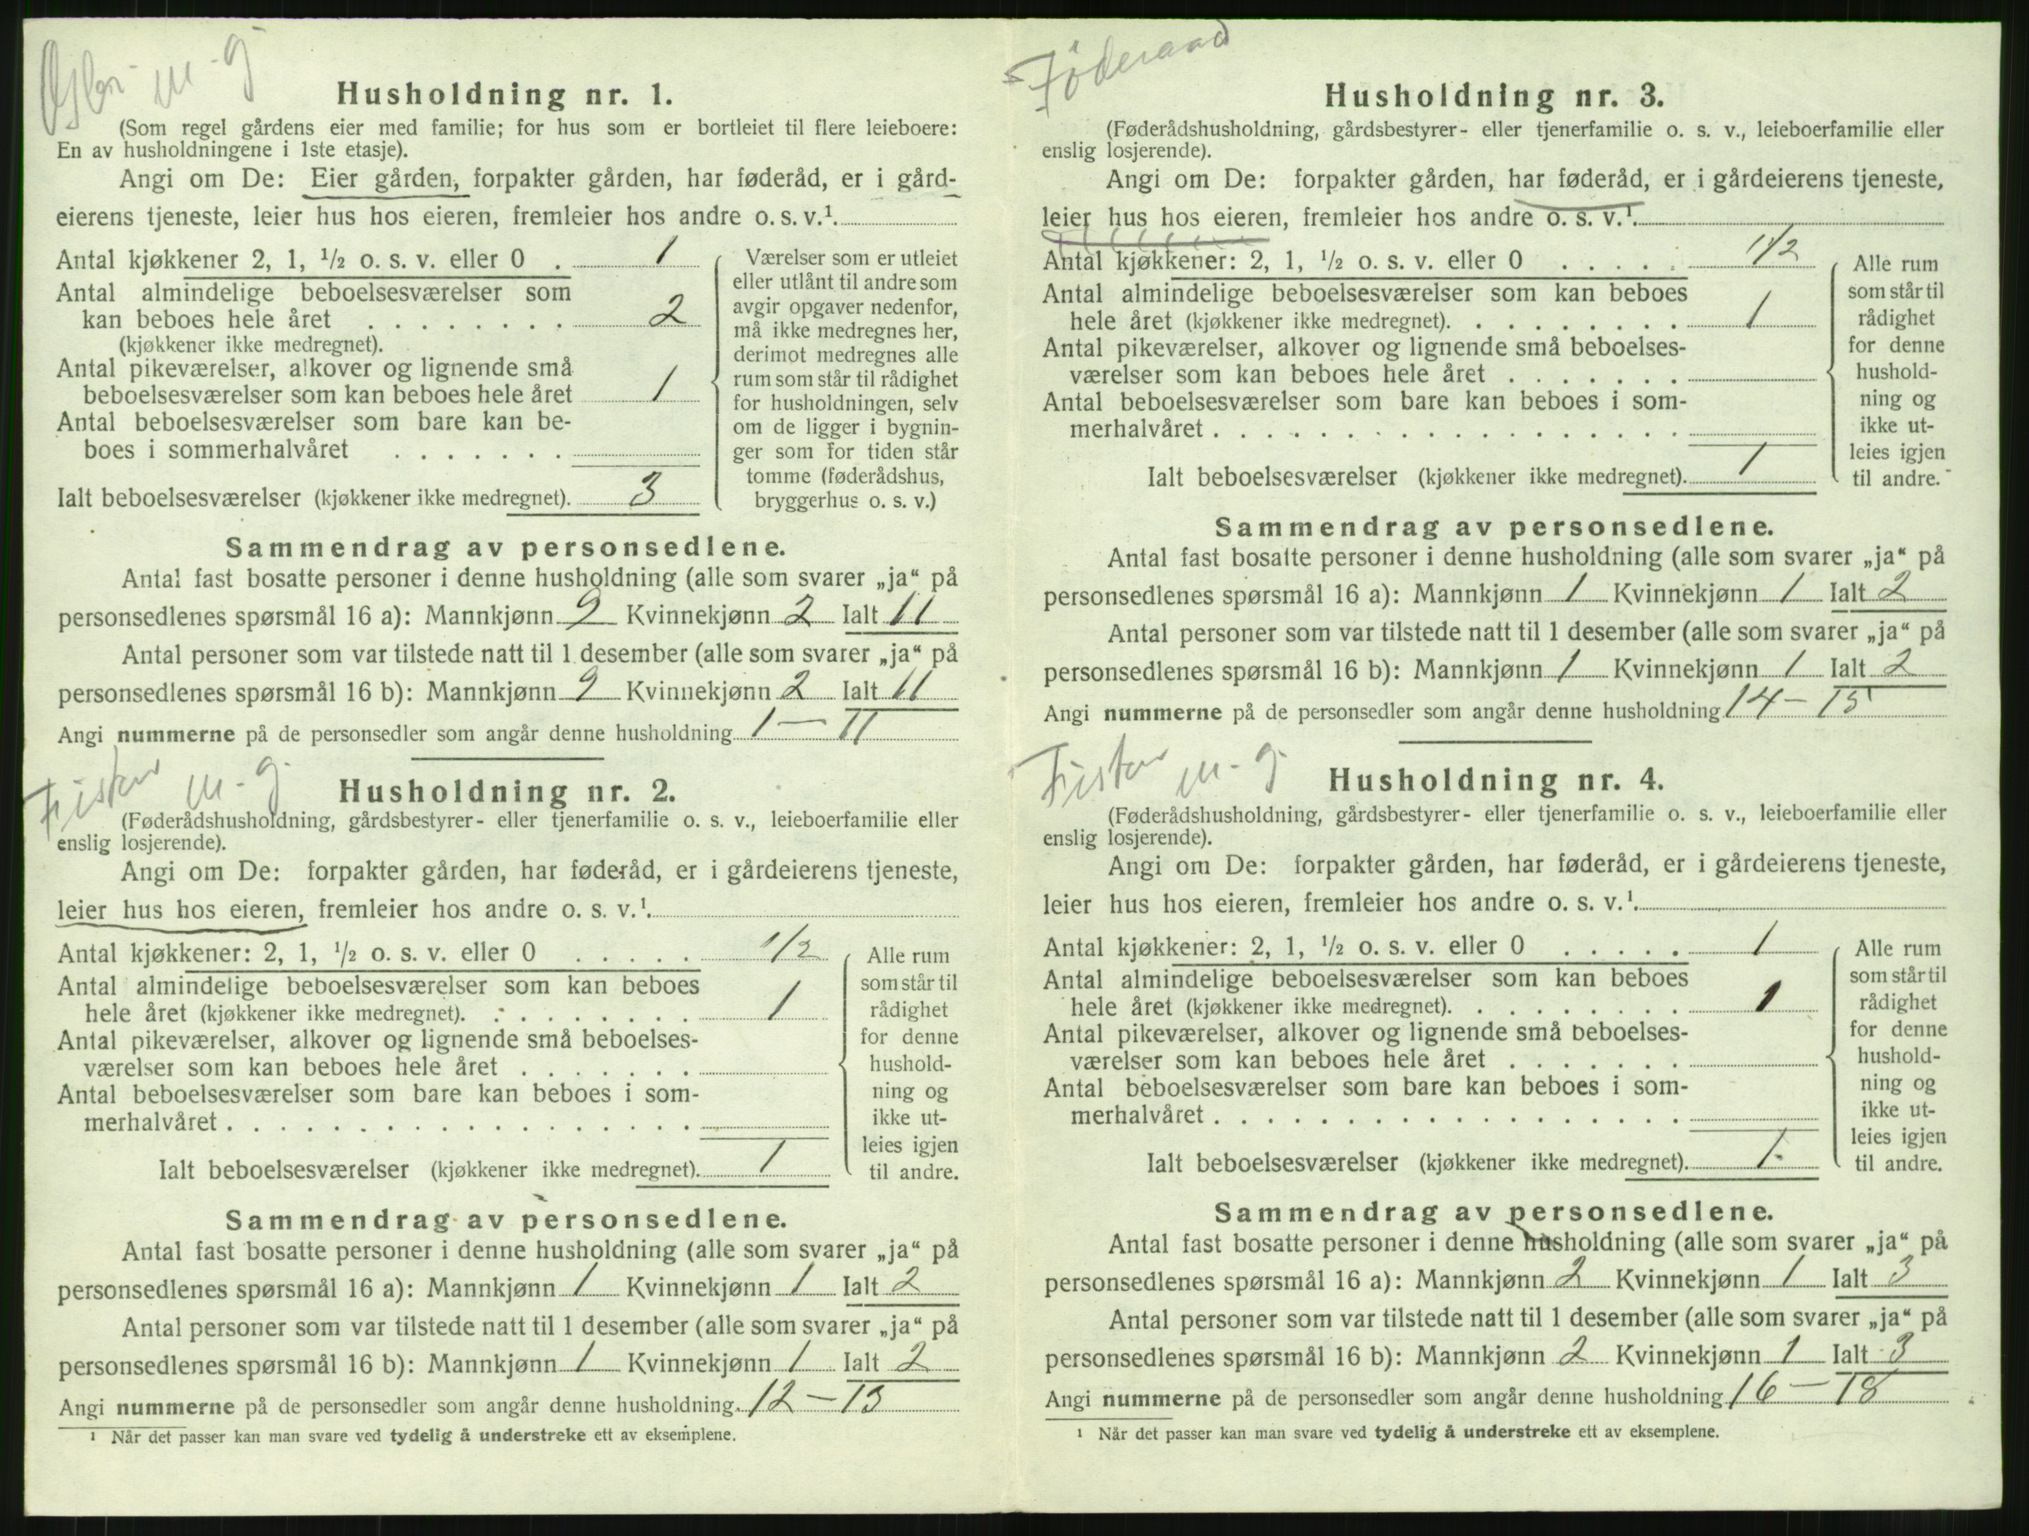 m. g
Husholdning nr. 1.
(Som regel gårdens eier med familie; for hus som er bortleiet til flere leieboere:
En av husholdningene i 1ste etasje).
Angi om De: Eier gården, forpakter gården, har føderåd, er i gård-
eierens tjeneste, leier hus hos eieren, fremleier hos andre o. s. v.¹
Antal kjøkkener 2, 1, ½ o. s. v. eller 0 . 1
Antal almindelige beboelsesværelser som
kan beboes hele året . . . . . . . . 2
(kjøkkener ikke medregnet).
Antal pikeværelser, alkover og lignende små
beboelsesværelser som kan beboes hele året 1
Antal beboelsesværelser som bare kan be-
boes i sommerhalvåret . . . . . . .
Ialt beboelsesværelser (kjøkkener ikke medregnet). 3
Værelser som er utleiet
eller utlånt til andre som
avgir opgaver nedenfor,
må ikke medregnes her,
derimot medregnes alle
rum som står til rådighet
for husholdningen, selv
om de ligger i bygnin-
ger som for tiden står
tomme (føderådshus,
bryggerhus o. s. v.)
Sammendrag av personsedlene.
Antal fast bosatte personer i denne husholdning (alle som svarer „ja“ på
personsedlenes spørsmål 16 a): Mannkjønn 9 Kvinnekjønn 2 Ialt 11
Antal personer som var tilstede natt til 1 desember (alle som svarer „ja“ på
personsedlenes spørsmål 16 b): Mannkjønn 9 Kvinnekjønn 2 Ialt 11
Angi nummerne på de personsedler som angår denne husholdning 1 — 11
Fisker m. g.
Husholdning nr. 2.
(Føderådshusholdning, gårdsbestyrer- eller tjenerfamilie o. s. v., leieboerfamilie eller
enslig losjerende).
Angi om De: forpakter gården, har føderåd, er i gårdeierens tjeneste,
leier hus hos eieren, fremleier hos andre o. s. v.¹
Antal kjøkkener: 2, 1, ½ o. s. v. eller 0 . . . . . 1/2
Antal almindelige beboelsesværelser som kan beboes
hele året (kjøkkener ikke medregnet). . . . . . . . . 1
Antal pikeværelser, alkover og lignende små beboelses-
værelser som kan beboes hele året . . . . . . .
Antal beboelsesværelser som bare kan beboes i som-
merhalvåret . . . . . . . . . . . . . . . . . .
Ialt beboelsesværelser (kjøkkener ikke medregnet). 1
Alle rum
som står til
rådighet
for denne
hushold-
ning og
ikke ut-
leies igjen
til andre.
Sammendrag av personsedlene.
Antal fast bosatte personer i denne husholdning (alle som svarer „ja“ på
personsedlenes spørsmål 16 a): Mannkjønn 1 Kvinnekjønn 1 Ialt 2
Antal personer som var tilstede natt til 1 desember (alle som svarer „ja“ på
personsedlenes spørsmål 16 b): Mannkjønn 1 Kvinnekjønn 1 Ialt 2
Angi nummerne på de personsedler som angår denne husholdning. 12 — 13
¹ Når det passer kan man svare ved tydelig å understreke ett av eksemplene.
Føderaad
Husholdning nr. 3.
(Føderådshusholdning, gårdsbestyrer- eller tjenerfamilie o. s. v., leieboerfamilie eller
enslig losjerende).
Angi om De: forpakter gården, har føderåd, er i gårdeierens tjeneste,
leier hus hos eieren, fremleier hos andre o. s. v.¹
Antal kjøkkener: 2, 1, ½ o. s. v. eller 0 . . . . . 1/2
Antal almindelige beboelsesværelser som kan beboes
hele året (kjøkkener ikke medregnet). . . . . . . . . 1
Antal pikeværelser, alkover og lignende små beboelses-
værelser som kan beboes hele året . . . . . . .
Antal beboelsesværelser som bare kan beboes i som-
merhalvåret . . . . . . . . . . . . . . . . . .
Ialt beboelsesværelser (kjøkkener ikke medregnet). 1
Alle rum
som står til
rådighet
for denne
hushold-
ning og
ikke ut-
leies igjen
til andre.
Sammendrag av personsedlene.
Antal fast bosatte personer i denne husholdning (alle som svarer „ja“ på
personsedlenes spørsmål 16 a): Mannkjønn 1 Kvinnekjønn 1 Ialt 2
Antal personer som var tilstede natt til 1 desember (alle som svarer „ja“ på
personsedlenes spørsmål 16 b): Mannkjønn 1 Kvinnekjønn 1 Ialt 2
Angi nummerne på de personsedler som angår denne husholdning 14 — 15
Fisker m. g.
Husholdning nr. 4.
(Føderådshusholdning, gårdsbestyrer- eller tjenerfamilie o. s. v., leieboerfamilie eller
enslig losjerende).
Angi om De: forpakter gården, har føderåd, er i gårdeierens tjeneste,
leier hus hos eieren, fremleier hos andre o. s. v.¹
Antal kjøkkener: 2, 1, ½ o. s. v. eller 0 . . . . . 1
Antal almindelige beboelsesværelser som kan beboes
hele året (kjøkkener ikke medregnet). . . . . . . . . 1
Antal pikeværelser, alkover og lignende små beboelses-
værelser som kan beboes hele året . . . . . . .
Antal beboelsesværelser som bare kan beboes i som-
merhalvåret . . . . . . . . . . . . . . . . . .
Ialt beboelsesværelser (kjøkkener ikke medregnet). 1.
Alle rum
som står til
rådighet
for denne
hushold-
ning og
ikke ut-
leies igjen
til andre.
Sammendrag av personsedlene.
Antal fast bosatte personer i denne husholdning (alle som svarer „ja“ på
personsedlenes spørsmål 16 a): Mannkjønn 2 Kvinnekjønn 1 Ialt 3
Antal personer som var tilstede natt til 1 desember (alle som svarer „ja“ på
personsedlenes spørsmål 16 b): Mannkjønn 2 Kvinnekjønn 1 Ialt 3
Angi nummerne på de personsedler som angår denne husholdning 16 — 18
¹ Når det passer kan man svare ved tydelig å understreke ett av eksemplene.